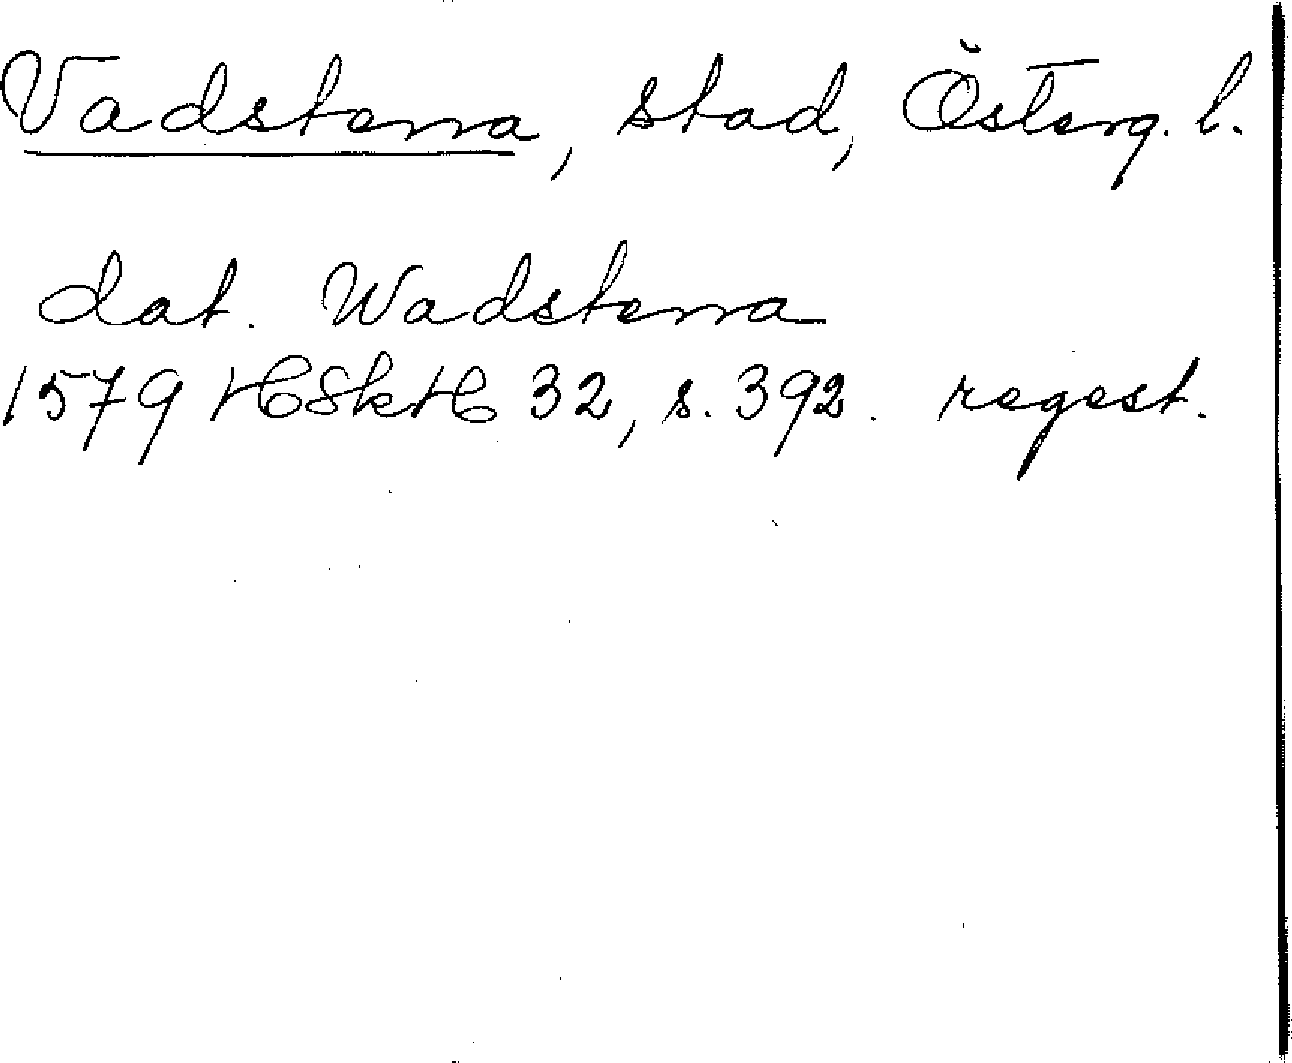 Vadstena, stad, Österg. l.
dat. Wadstena
1579 HSkH 32, s. 392. regest.